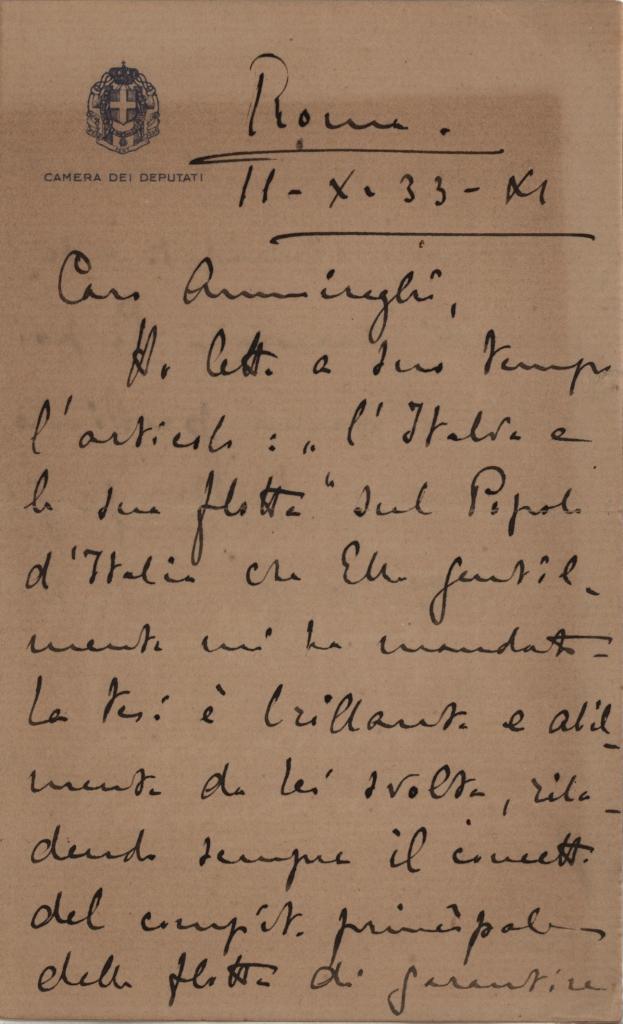 CAMERA DEI DEPUTATI
Roma.
11-X-33-XI
Caro Ammiraglio,
Ho letto a suo tempo
l'articolo: „l'Italia e
la sua flotta" sul Popolo
d'Italia che Ella gentil-
mente mi ha mandato -
La tesi è brillante e abil-
mente da lei svolta, riba-
dendo sempre il concetto
del compito principale
della flotta di garantire